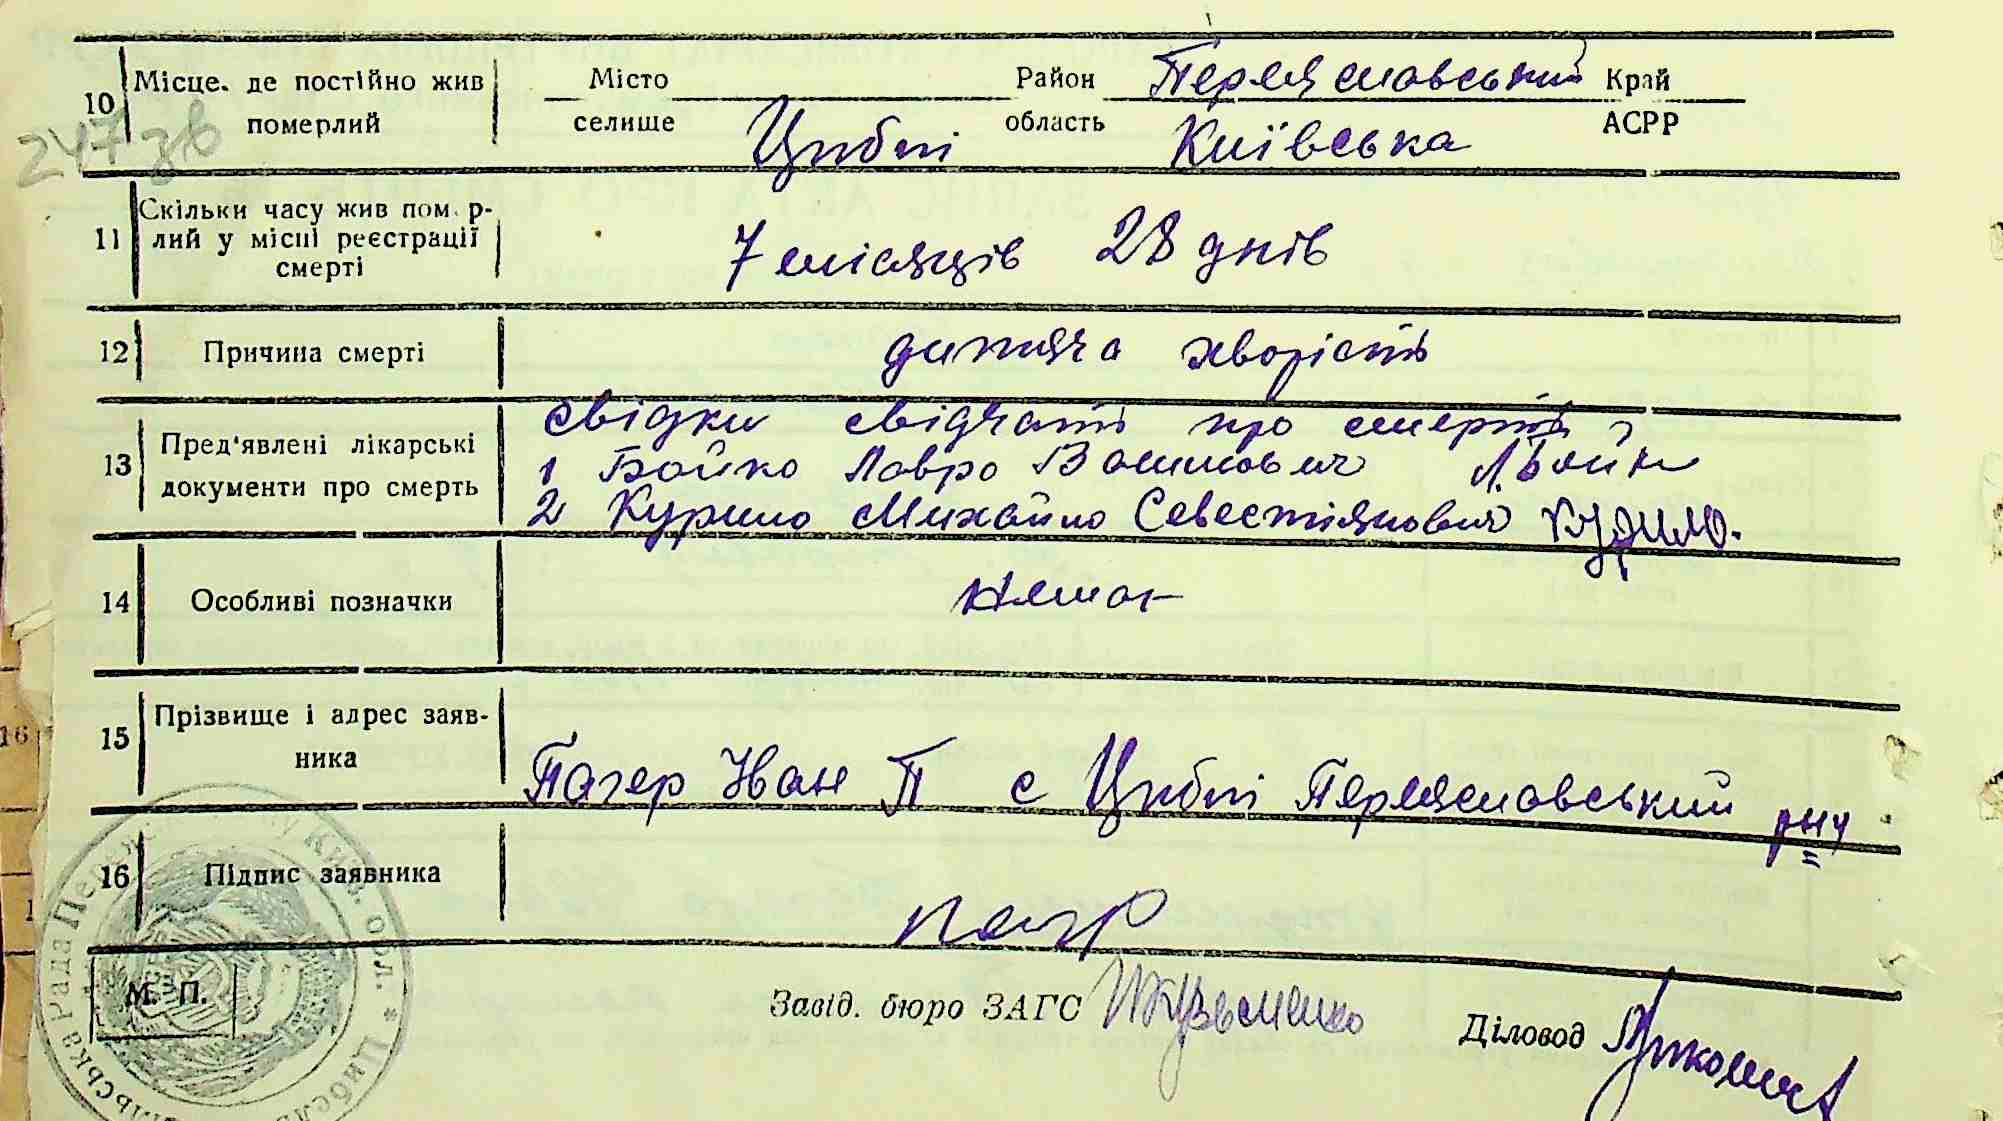 10 Місце. де постійно жив померлий Місто Район Переяславський Край
247 зв селище Циблі область Київська АСРР
11 Скільки часу жив пом. р-
лий у місці реєстрації
смерті
7 місяців 28 днів
12 Причина смерті дитяча хворість
13 Пред'явлені лікарські
документи про смерть
свідки свідчать про смерть
1 Бойко Лавро Л. Бойко
2 Курило Михайло Севестіянович Курило.
14 Особливі позначки немає
15 Прізвище і адрес заяв-
ника
Пагер Іван П с Циблі Переяславський р-ну
16 Підпис заявника
Пагер
М. П.
Завід. бюро ЗАГС Кузьменко
Діловод
Рада Київ. обл. * Цибел
16